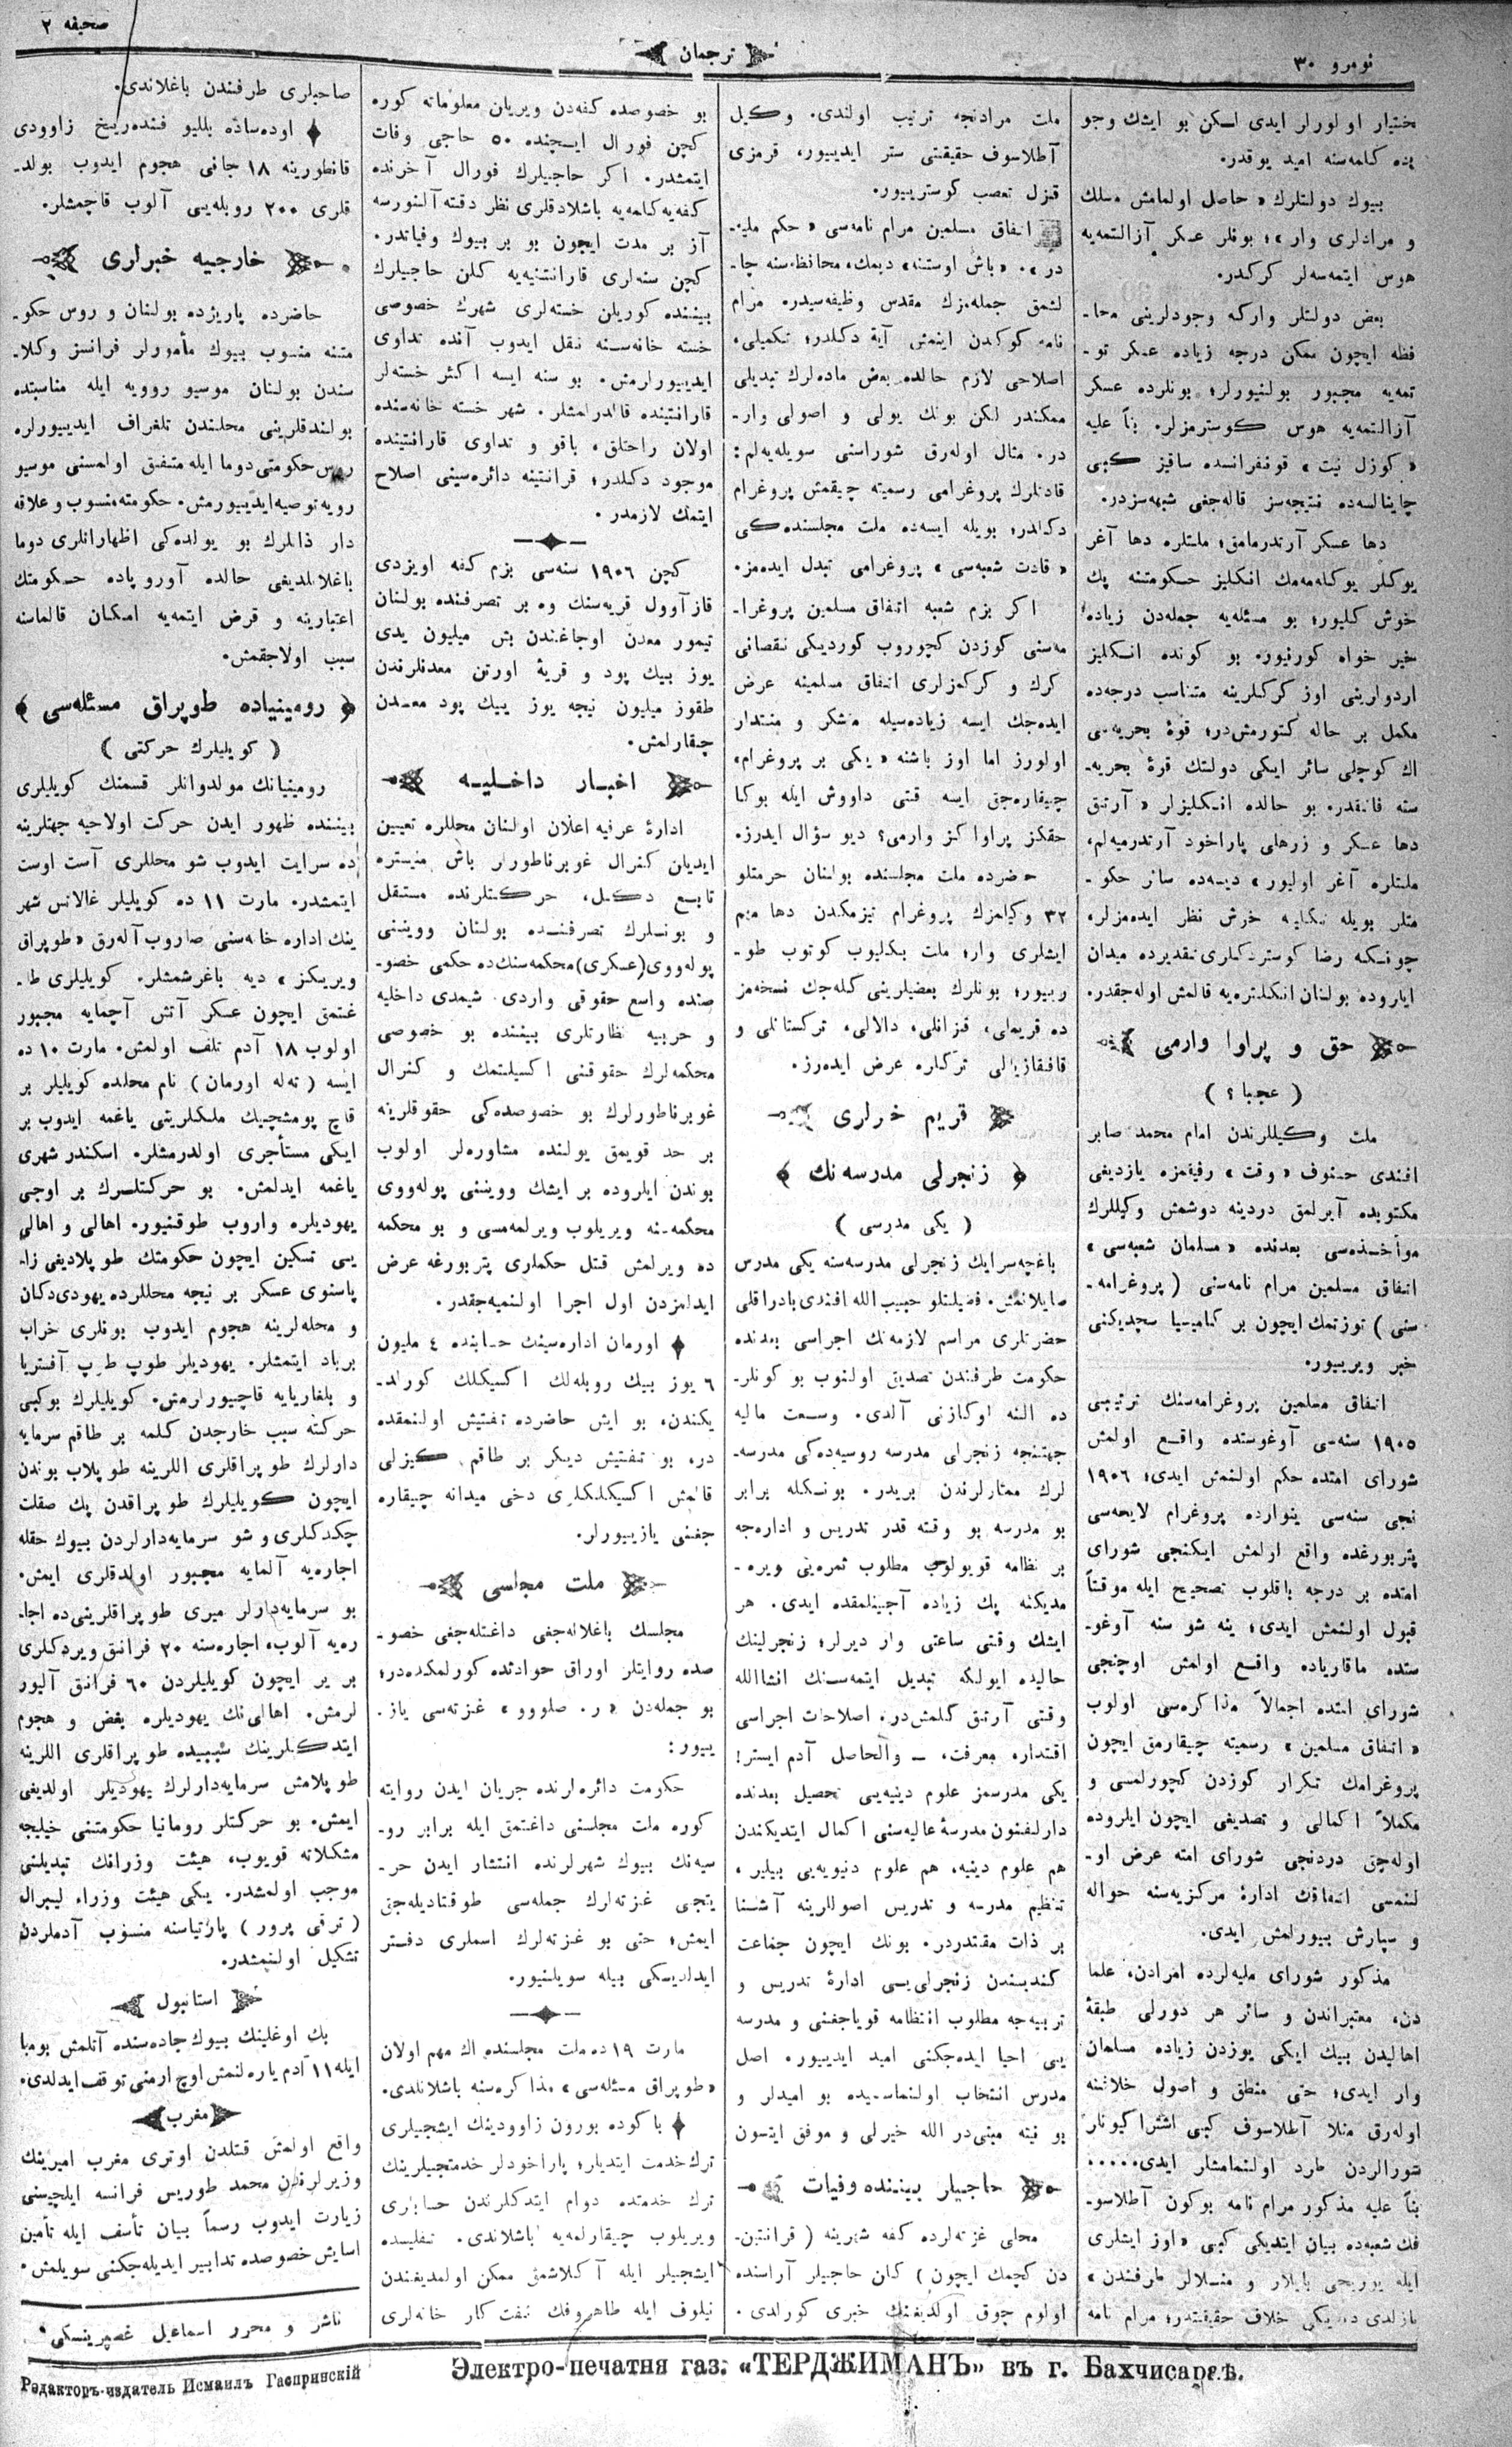 نومرو ٣٠
ترجمان
صحيفه ٢
ختيار اولورلر ايدى لـكن بو ايشك وجو
بده كلمه‌سنه اميد يوقدر.
بيوك دولتلرك « حاصل اولمامش مسلك
و مرادلرى وار »؛ بونلر عسكر آزالتمه‌يه
هوس ايتمه‌سه‌لر كركدر.
بعض دولتلر واركه وجودلرينى محا‍‍ـ
فظه ايچون ممكن درجه زياده عسكر تو‍ـ
تمه‌يه مجبور بولنيورلر؛ بونلرده عسكر
آزالتمه‌يه هوس كوسترمزلر. بناً عليه
« كوزل نيت » قونفرانسده ساقيز كبى
چاينالسه‌ده نتيجه‌سز قاله‌جغى شبهه‌سزدر.
دها عسكر آرتدرمامق؛ ملتلره دها آغر
يوكلر يوكله‌مه‌مك انكليز حـكومتنه پك
خوش كليور؛ بو مسئله‌يه جمله‌دن زياده
خير خواه كورنيور. بو كونده انـكليز
اردولرينى اوز كركلرينه متناسب درجه‌ده
مكمل بر حاله كتورمش‌در؛ قوهٔ بحريه‌سى
اك كوچلى سائر ايكى دولتك قوهٔ بحريه‍ـ
سنه فائقدر. بو حالده انـكليزلر « آرتق
دها عسكر و زرهلى پاراخود آرتدرميه‌لم،
ملتلره آغر اوليور » ديسه‌ده سائر حكو‍ـ
متلر بويله تكليفه خوش نظر ايده‌مزلر،
چونـكه رضا كوستردكلرى تقديرده ميدان
ايلروده بولنان انكلتره‌يه قالمش اوله‌جقدر.
حق و پراوا وارمى
( عجبا ؟ )
ملت وكيللرندن امام محمد صابر
افندى حسنوف « وقت » رفيقمزه يازديغى
مكتوبده آيرلمق دردينه دوشمش وكيللرك
مواخذه‌سى بعدنده « مسلمان شعبه‌سى »
اتفاق مسلمين مرام نامه‌سنى ( پروغرامه‍ـ
سنى ) توزتمك ايچون بر كاميسيا سچديكنى
خبر ويرييور.
اتفاق مسلمين پروغرامه‌سنك ترتيبى
١٩٠٥ سنه‌سى آوغوستده واقـع اولمش
شوراى امتده حكم اولنمش ايدى؛ ١٩٠٦
نجى سنه‌سى ينوارده پروغرام لايحه‌سى
پتربورغده واقع اولمش ايكنجى شوراى
امتده بر درجه باقلوب تصحيح ايله موقتاً
قبول اولنمش ايدى؛ ينه شو سنه آوغو‍ـ
ستده ماقارياده واقـع اولمش اوچنجى
شوراى امتده اجمالاً مذاكره‌سى اولوب
« اتفاق مسلمين » رسميته چيقارمق ايچون
پروغرامك تكرار كوزدن كچورلمسى و
مكملاً اكمالى و تصديقى ايچون ايلروده
اوله‌جق دردنجى شوراى امته عرض او‍ـ
لنمسى اتفاقك ادارهٔ مركزيه‌سنه حواله
و سپارش بيورلمش ايدى.
مذكور شوراى مليه‌لرده امرادن، علما
دن، معتبراندن و سائر هر دورلى طبقهٔ
اهاليدن بيك ايكى يوزدن زياده مسلمان
وار ايدى؛ حتى منطق و اصول خلافنه
اوله‌رق مثلا آطلاسوف كبى اشتراكيونلر
شورالردن طرد اولنمامشلر ايدى.....
بناً عليه مذكور مرام نامه بوكون آطلاسو‍ـ
فك شعبه‌ده بيان ايتديكى كبى « اوز ايشلرى
ايله يوريجى بايلار و منـلالر طرفندن »
يازلدى ديمكى خلاف حقيقتدر؛ مرام نامه
ملت مرادنجه ترتيب اولندى. وكيل
آطلاسوف حقيقتى ستر ايدييور، قرمزى
قزل تعصب كوسترييور.
اتفاق مسلمين مرام نامه‌سى « حكم مليه‍ـ
در ». « باش اوستنه » ديمك، محافظه‌سنه چا‍ـ
لشمق جمله‌مزك مقدس وظيفه‌سيدر. مرام
نامه كوكدن اينمش آية دكلدر؛ تكميلى،
اصلاحى لازم حالده بعض ماده‌لرك تبديلى
ممكندر لكن بونك يولى و اصولى وار‍ـ
در. مثال اوله‌رق شوراسنى سويليه‌لم:
قادتلرك پروغرامى رسميته چيقمش پروغرام
دكلدر؛ بويله ايسه‌ده ملت مجلسنده‌كى
« قادت شعبه‌سى » پروغرامى تبدل ايده‌مز.
اكر بزم شعبه اتفاق مسلمين پروغرا‍ـ
مه‌سنى كوزدن كچوروب كورديكى نقصانى
كرك و كركمزلرى اتفاق مسلمينه عرض
ايده‌جك ايسه زياده‌سيله متشكر و منتدار
اولورز اما اوز باشنه « يكى بر پروغرام »
چيقاره‌جق ايسه قتى داووش ايله بوكا
حقكز پراواكز وارمى؟ ديو سؤال ايدرز.
حاضرده ملت مجلسنده بولنان حرمتلو
٣٢ وكيلمزك پروغرام تيزمكدن دها مهم
ايشلرى وار؛ ملت بكليوب كوتوب طو‍ـ
رييور؛ بونلرك بعضيلرينى كله‌جك نسخه‌مز
ده قريملى، قزانلى، دالالى، تركستانلى و
قافقازيالى تركلره عرض ايده‌رز.
قريم خبرلرى
زنجرلى مدرسه‌نك
( يكى مدرسى )
باغچه‌سرايك زنجرلى مدرسه‌سنه يكى مدرس
صايلانمش. فضيلتلو حبيب الله افندى بادراقلى
حضرتلرى مراسم لازمه‌نك اجراسى بعدنده
حكومت طرفندن تصديق اولنوب بو كونلر‍ـ
ده النه اوكازنى آلدى. وسعت ماليه
جهتنجه زنجرلى مدرسه روسيه‌ده‌كى مدرسه‍ـ
لرك ممتازلرندن بريدر. بونـكله برابر
بو مدرسه بو وقته قدر تدريس و اداره‌جه
بر نظامه قويولوب مطلوب ثمره‌يى ويره‍ـ
مديكنه پك زياده آجينلمقده ايدى. هر
ايشك وقتى ساعتى وار ديرلر؛ زنجرلينك
حاليده ايولكه تبديل ايتمه‌سـنك انشاالله
وقتى آرتق كلمش‌در. اصلاحات اجراسى
اقتداره، معرفت، — والحاصل آدم ايستر!
يكى مدرسمز علوم دينيه‌يى تحصيل بعدنده
دارلفنون مدرسهٔ عاليه‌سنى اكمال ايتديكندن
هم علوم دينيه، هم علوم دنيويه‌يى بيلير،
تنظيم مدرسه و تدريس اصوللرينه آشنا
بر ذات مقتدردر. بونك ايچون جماعت
كنديسندن زنجرلى‌يـى ادارهٔ تدريس و
تربيه‌جه مطلوب انتظامه قوياجغنى و مدرسه
يى احيا ايده‌جكنى اميد ايدييور. اصل
مدرس انتخاب اولنماسيده بو اميدلر و
بو نيته مبنى‌در الله خيرلى و موفق ايتسون
حاجيلر بيننده وفيات
محلى غزته‌لرده كفه شهرينه ( قرانتين‍ـ
دن كچمك ايچون ) كلن حاجيلر آراسنده
اولوم چوق اولديغنك خبرى كورلدى.
بو خصوصده كفه‌دن ويريلن معلوماته كوره
كچن فورال ايـچنده ٥٠ حاجى وفات
ايتمشدر. اكر حاجيلرك فورال آخرنده
كفه‌يه كلمه‌يه باشلادقلرى نظر دقته آلنورسه
آز بر مدت ايچون بو بر بيوك وفياتدر.
كچن سنه‌لرى قارانتنيه‌يه كلن حاجيلرك
بيننده كوريلن خسته‌لرى شهرك خصوصى
خسته خانه‌سـنه نقل ايدوب آنده تداوى
ايدييورلرمش. بو سنه ايسه اكثر خسته‌لر
قارانتينده قالدرلمشلر. شهر خسته خانه‌سنده
اولان راحتلق، باقو و تداوى قارانتينده
موجود دكلدر؛ قرانتينه دائره‌سينى اصلاح
ايتمك لازمدر.
كچن ١٩٠٦ سنه‌سى بزم كفه اويزدى
قازآوول قريه‌سنك وه بر تصرفنده بولنان
تيمور معدن اوجاغندن بش ميليون يدى
يوز بيك پود و قريهٔ اورتن معدنلرندن
طقوز ميليون نيجه يوز بيك پود معـدن
چيقارلمش.
اخبـار داخـليـه
ادارهٔ عرفيه اعلان اولنان محللره تعيين
ايديلن كنرال غوبرناطورلر باش منيستره
تابـع دكـل، حركتلرنده مستقل
و بونـلرك تصرفنـده بولنان وويننى
پوله‌ووى (عسكرى) محكمه‌سنك‌ده حكمى خصو‍ـ
صنده واسع حقوقى واردى. شيمدى داخليه
و حربيه نظارتلرى بيننده بو خصوصى
محكمه‌لرك حقوقنى اكسيلتمك و كنرال
غوبرناطورلرك بو خصوصده‌كى حقوقلرينه
بر حد قويمق يولنده مشاوره‌لر اولوب
بوندن ايلروده بر ايشك وويننى پوله‌ووى
محكمه‌سنه ويريلوب ويرلمه‌مسى و بو محكمه
ده ويرلمش قتل حكملرى پتربورغه عرض
ايدلمزدن اول اجرا اولنميه‌جقدر.
اورمان اداره‌سينك حسابنده ٤ مليون
٦ يوز بيك روبله‌لك اكسيكلك كورلد‍ـ
يكندن، بو ايش حاضرده تفتيش اولنمقده
در. بو تفتيش ديكر بر طاقم كيزلى
قالمش اكسيكلكلرى دخى ميدانه چيقاره
جغنى يازييورلر.
ملت مجلسى
مجلسك باغلانه‌جغى داغتله‌جغى خصو‍ـ
صده روايتلر اوراق حوادثده كورلمكده‌در؛
بو جمله‌دن « ر. صلووو » غزته‌سى ياز‍ـ
ييور:
حكومت دائره‌لرنده جريان ايدن روايته
كوره ملت مجلسنى داغتمق ايله برابر رو‍ـ
سيه‌نك بيوك شهرلرنده انتشار ايدن حر‍ـ
يتجى غزته‌لرك جمله‌سى طوقتاديله‌جق
ايمش؛ حتى بو غزته‌لرك اسملرى دفتر
ايدلديـكى بيله سويلنيور.
مارت ١٩ ده ملت مجلسنده اك مهم اولان
« طوپراق مسئله‌سى » مذاكره‌سنه باشلانلدى.
باكوده بورون زاوودينك ايشجيلرى
ترك خدمت ايتديلر؛ پاراخودلر خدمتجيلرينك
ترك خدمتده دوام ايتدكلرندن حسابلرى
ويريلوب چيقارلمه‌يه باشلاندى. تفليسده
ايشجيلر ايله آكلاشمق ممكن اولمديغندن
نيلوف ايله طاهروفك نفت كار خانه‌لرى
صاحبلرى طرفندن باغلاندى.
اوده‌ساده بلليو فنده‌ريخ زاوودى
قانطورينه ١٨ جانى هجوم ايدوب بولد‍ـ
قلرى ٢٠٠ روبله‌يى آلوب قاچمشلر.
خارجيه خبرلرى
حاضرده پاريژده بولنان و روس حكو‍ـ
متنه منسوب بيوك مأمورلر فرانسز وكلا‍ـ
سندن بولنان موسيو روويه ايله مناسبتده
بولندقلرينى محلندن تلغراف ايدييورلر.
روس حكومتى دوما ايله متفق اولمسنى موسيو
رويه توصيه ايدييورمش. حكومته منسوب و علاقه
دار ذاتلرك بو يولده‌كى اظهاراتلرى دوما
باغلانلديغى حالده آوروپاده حـكومتك
اعتبارينه و قرض ايتمه‌يه امكـان قالماسنه
سبب اولاجقمش.
رومينياده طوپراق مسئله‌سى
( كويليلرك حركتى )
رومينيانك مولدوانلر قسمنك كويليلرى
بيننده ظهور ايدن حركت اولاحيه جهتلرينه
ده سرايت ايدوب شو محللرى آست اوست
ايتمشدر. مارت ١١ ده كويليلر غالاتس شهر
ينك اداره خانه‌سنى صاروب آله‌رق « طوپراق
ويريكز » ديه باغرشمشلر. كويليلرى طا‍ـ
غتمق ايچون عسكر آتش آچمايه مجبور
اولوب ١٨ آدم تلف اولمش. مارت ١٠ ده
ايسه ( ته‌له اورمان ) نام محلده كويليلر بر
قاچ پومشچيك ملكلرينى ياغمه ايدوب بر
ايكى مستأجرى اولدرمشلر. اسكندر شهرى
ياغمه ايدلمش. بو حركتلـرك بر اوجى
يهوديلره واروب طوقنيور. اهالى و اهالى
يى تسكين ايچون حكومتك طوپلاديغى زا‍ـ
پاسنوى عسكر بر نيجه محللرده يهودى دكان
و محله‌لرينه هجوم ايدوب بونلرى خراب
برباد ايتمشلر. يهوديلر طوپ طوپ آفستريا
و بلغاريايه قاچييورلرمش. كويليلرك بوكبى
حركتنه سبب خارجدن كلمه بر طاقم سرمايه
دارلرك طوپراقلرى اللرينه طوپلاب بوندن
ايچون كويليلرك طوپراقدن پك صقلت
چكدكلرى و شو سرمايه‌دارلردن بيوك حقله
اجاره‌يه آلمايه مجبور اولدقلرى ايمش.
بو سرمايه‌دارلر ميرى طوپراقلرينى‌ده اجا‍ـ
ره‌يه آلوب، اجاره‌سنه ٢٠ فرانق ويردكلرى
بر ير ايچون كويليلردن ٦٠ فرانق آليور
لرمش. اهالى‌نك يهوديلره بغض و هجوم
ايتدكـلرينك سببيده طوپراقلرى اللرينه
طوپلامش سرمايه‌دارلرك يهوديلر اولديغى
ايمش. بو حركتلر رومانيا حكومتنى خيليجه
مشكلاته قويوب، هيئت وزرانك تبديلنى
موجب اولمشدر. يكى هيئت وزراء ليبرال
( ترقى پرور ) پارتياسنه منسوب آدملردن
تشكيل اولنمشدر.
استانبول
بك اوغلينك بيوك جاده‌سنده آتلمش بومبا
ايله ١١ آدم ياره‌لنمش اوچ ارمنى توقف ايدلدى.
مغرب
واقع اولمش قتلدن اوترى مغرب اميرينك
وزيرلرندن محمد طوريس فرانسه ايلچيسنى
زيارت ايدوب رسماً بيان تأسف ايله تأمين
اسايش خصوصده تدابير ايديله‌جكنى سويلمش.
ناشر و محرر اسماعيل غصپرينسكى
Редакторъ-издатель Исмаилъ Гаспринскій
Электро-печатня газ. «ТЕРДЖИМАНЪ» въ г. Бахчисараѣ.